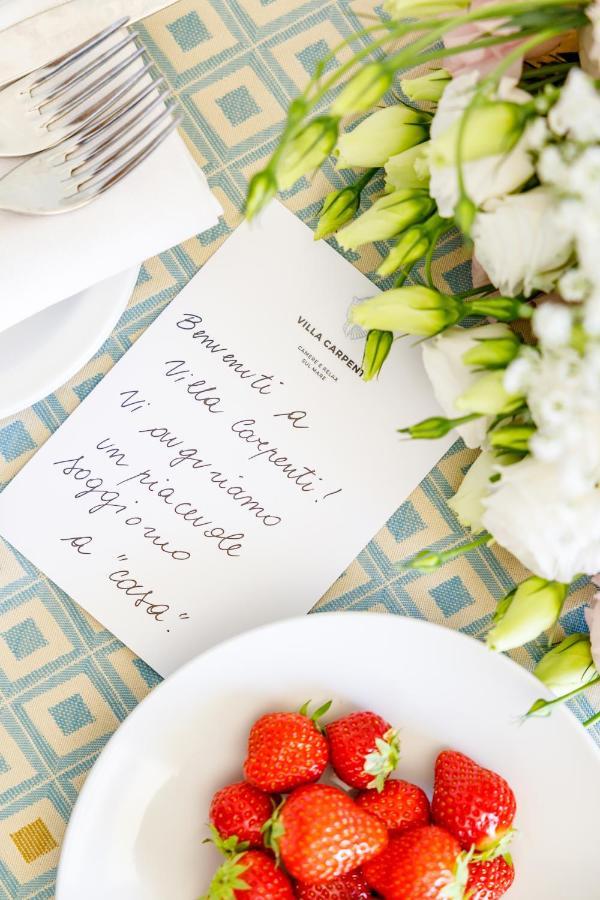 VILLA CARPENT
CAMERE E RELAX
SUL MARE
Benvenuti a
Villa Carpenti!
Vi auguriamo
un piacevole
soggiorno
a "casa."